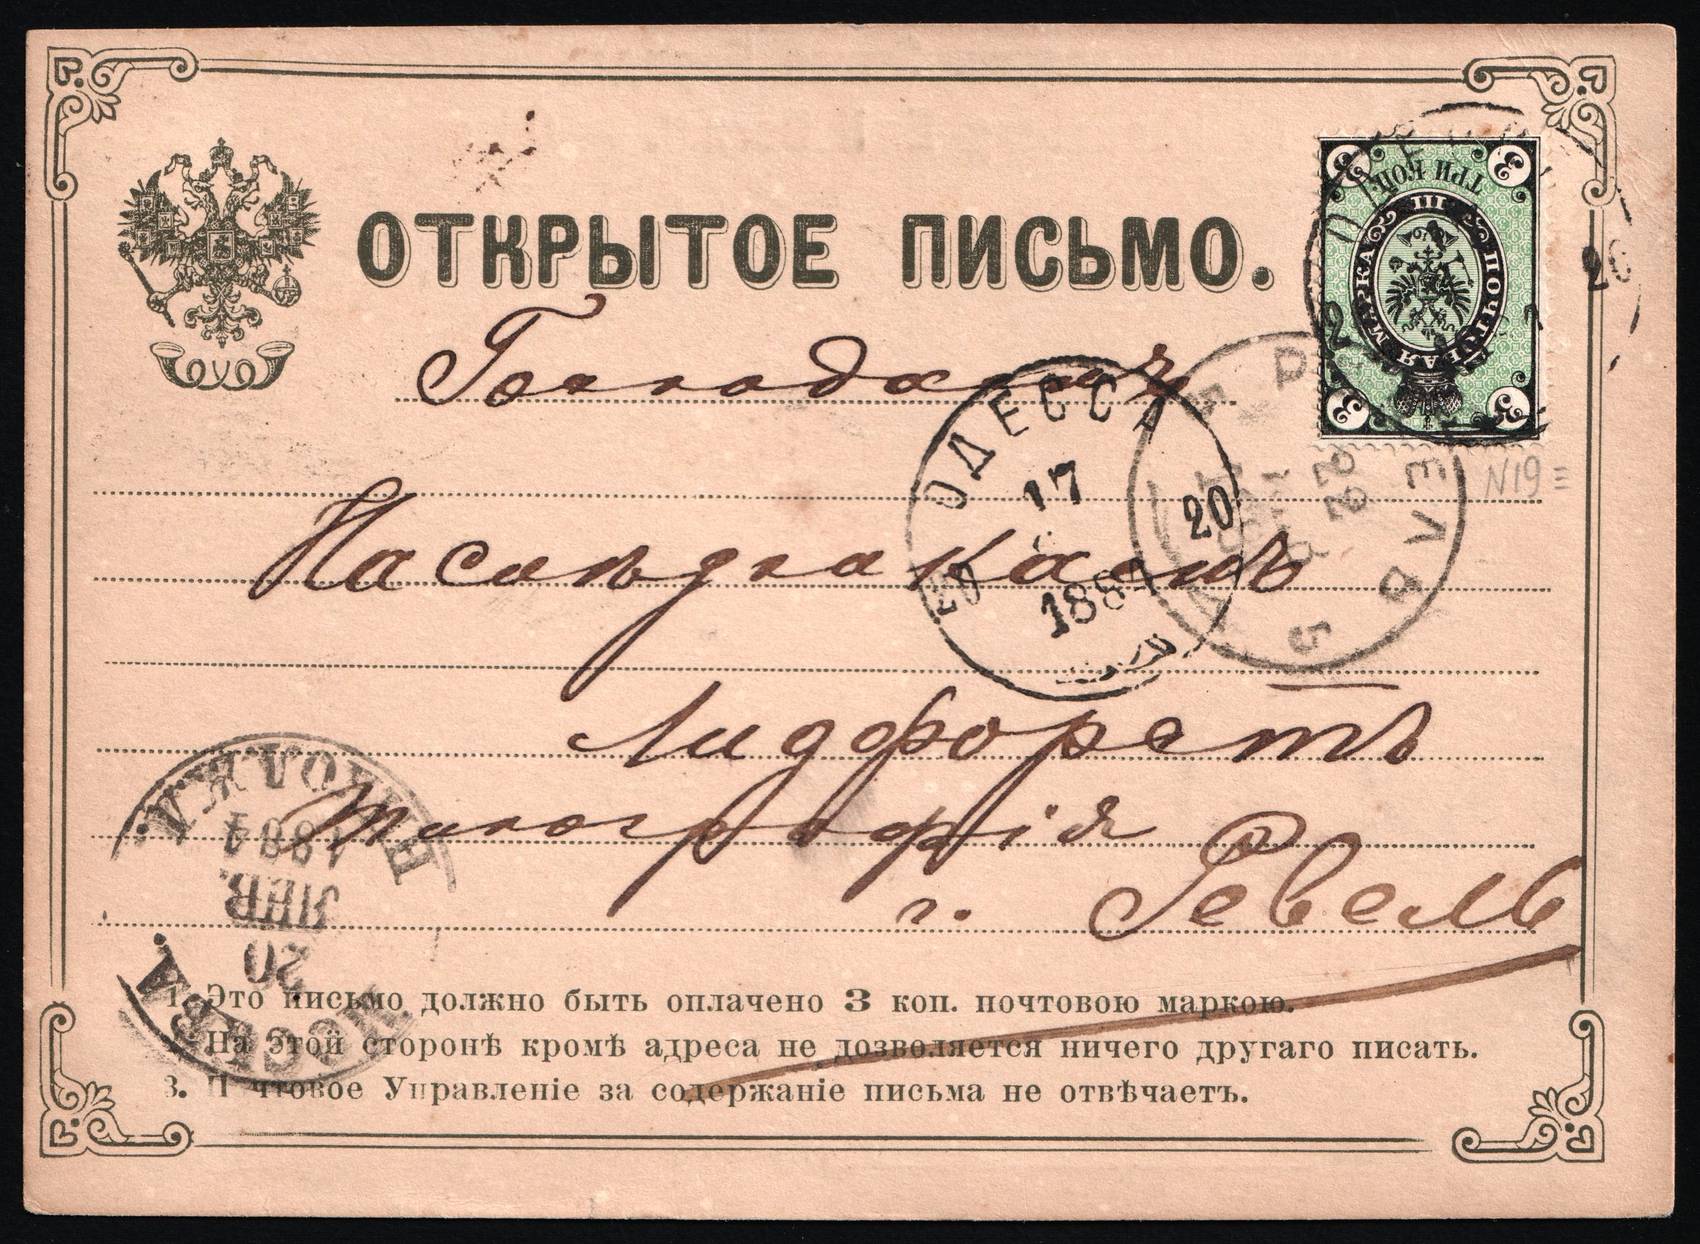 ОТКРЫТОЕ ПИСЬМО.
ТРИ КОП.
ПОЧТОВАЯ МАРКА III
3 3 3 3
N19
Господамъ
Наслѣдникамъ
ОДЕССА
17
20
1884
REVAL
Линдфорстъ
типографія
г. Ревель
ВОКЗАЛ.
1884
ЯНВ.
20
МОСКВА
1. Это письмо должно быть оплачено 3 коп. почтовою маркою.
2. На этой сторонѣ кромѣ адреса не дозволяется ничего другаго писать.
3. Почтовое Управленіе за содержаніе письма не отвѣчаетъ.